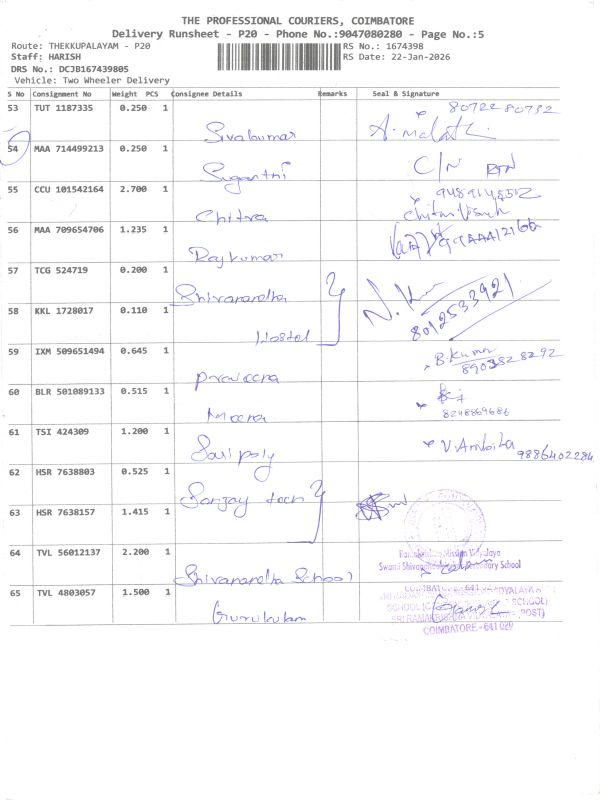 THE PROFESSIONAL COURIERS, COIMBATORE
Delivery Runsheet - P20 - Phone No.:9047080280 - Page No.:5
Route: THEKKUPALAYAM - P20
RS No.: 1674398
Staff: HARISH
RS Date: 22-Jan-2026
DRS No.: DCJB167439805
Vehicle: Two Wheeler Delivery
S No Consignment No Weight PCS Consignee Details Remarks Seal & Signature
53 TUT 1187335 0.250 1 Sivakumar 8072280732
54 MAA 714499213 0.250 1 Suganthi C/N RTN
55 CCU 101542164 2.700 1 Chitra
56 MAA 709654706 1.235 1 Rajkumar
57 TCG 524719 0.200 1 Shivanandha
58 KKL 1728017 0.110 1 Hostel 8012533921
59 IXM 509651494 0.645 1 Praveena B.Kumar 8903828292
60 BLR 501089133 0.515 1 Meena 8248869686
61 TSI 424309 1.200 1 Sai poly V. Ambika 9886402284
62 HSR 7638803 0.525 1 Sanjay tech
63 HSR 7638157 1.415 1
64 TVL 56012137 2.200 1 Shivanandha School
Ramakrishna Mission Vidyalaya
Swami Shivananda Higher Secondary School
COIMBATORE - 641
65 TVL 4803057 1.500 1 Gurukulam
VIDYALAYA
SCHOOL
SCHOOL)
SRI RAMAKRISHNA VIDYALAYA (POST)
COIMBATORE - 641 020